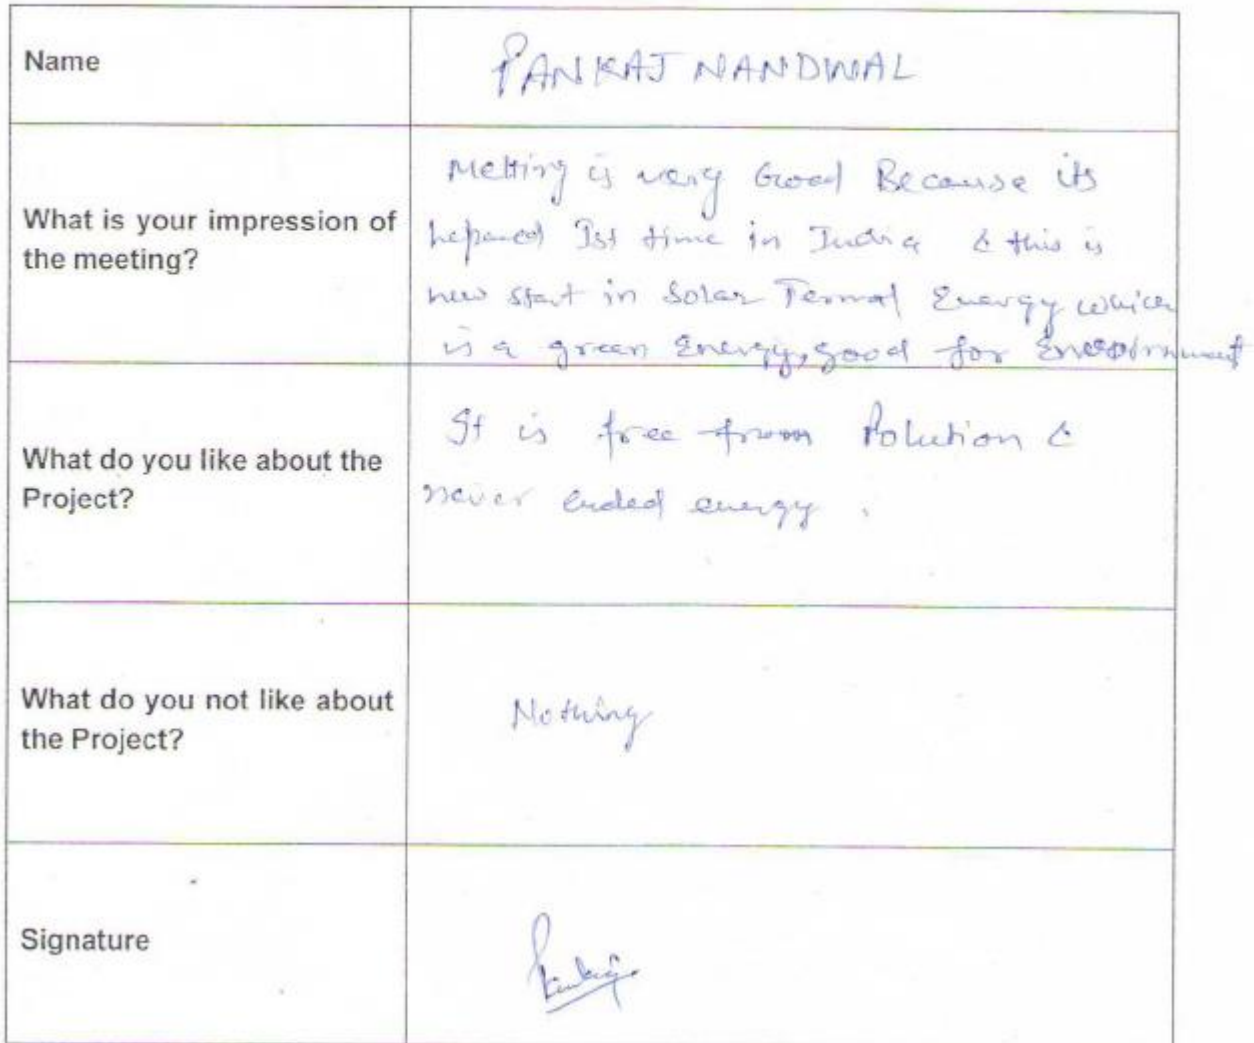 Name
PANKAJ NANDWAL
What is your impression of
the meeting?
Metting is very Good Because its
hepened Ist time in India & this is
new start in Solar Termal Energy which
is a green Energy, good for
What do you like about the
Project?
It is free from Polution &
never ended energy .
What do you not like about
the Project?
Nothing
Signature
Pankaj